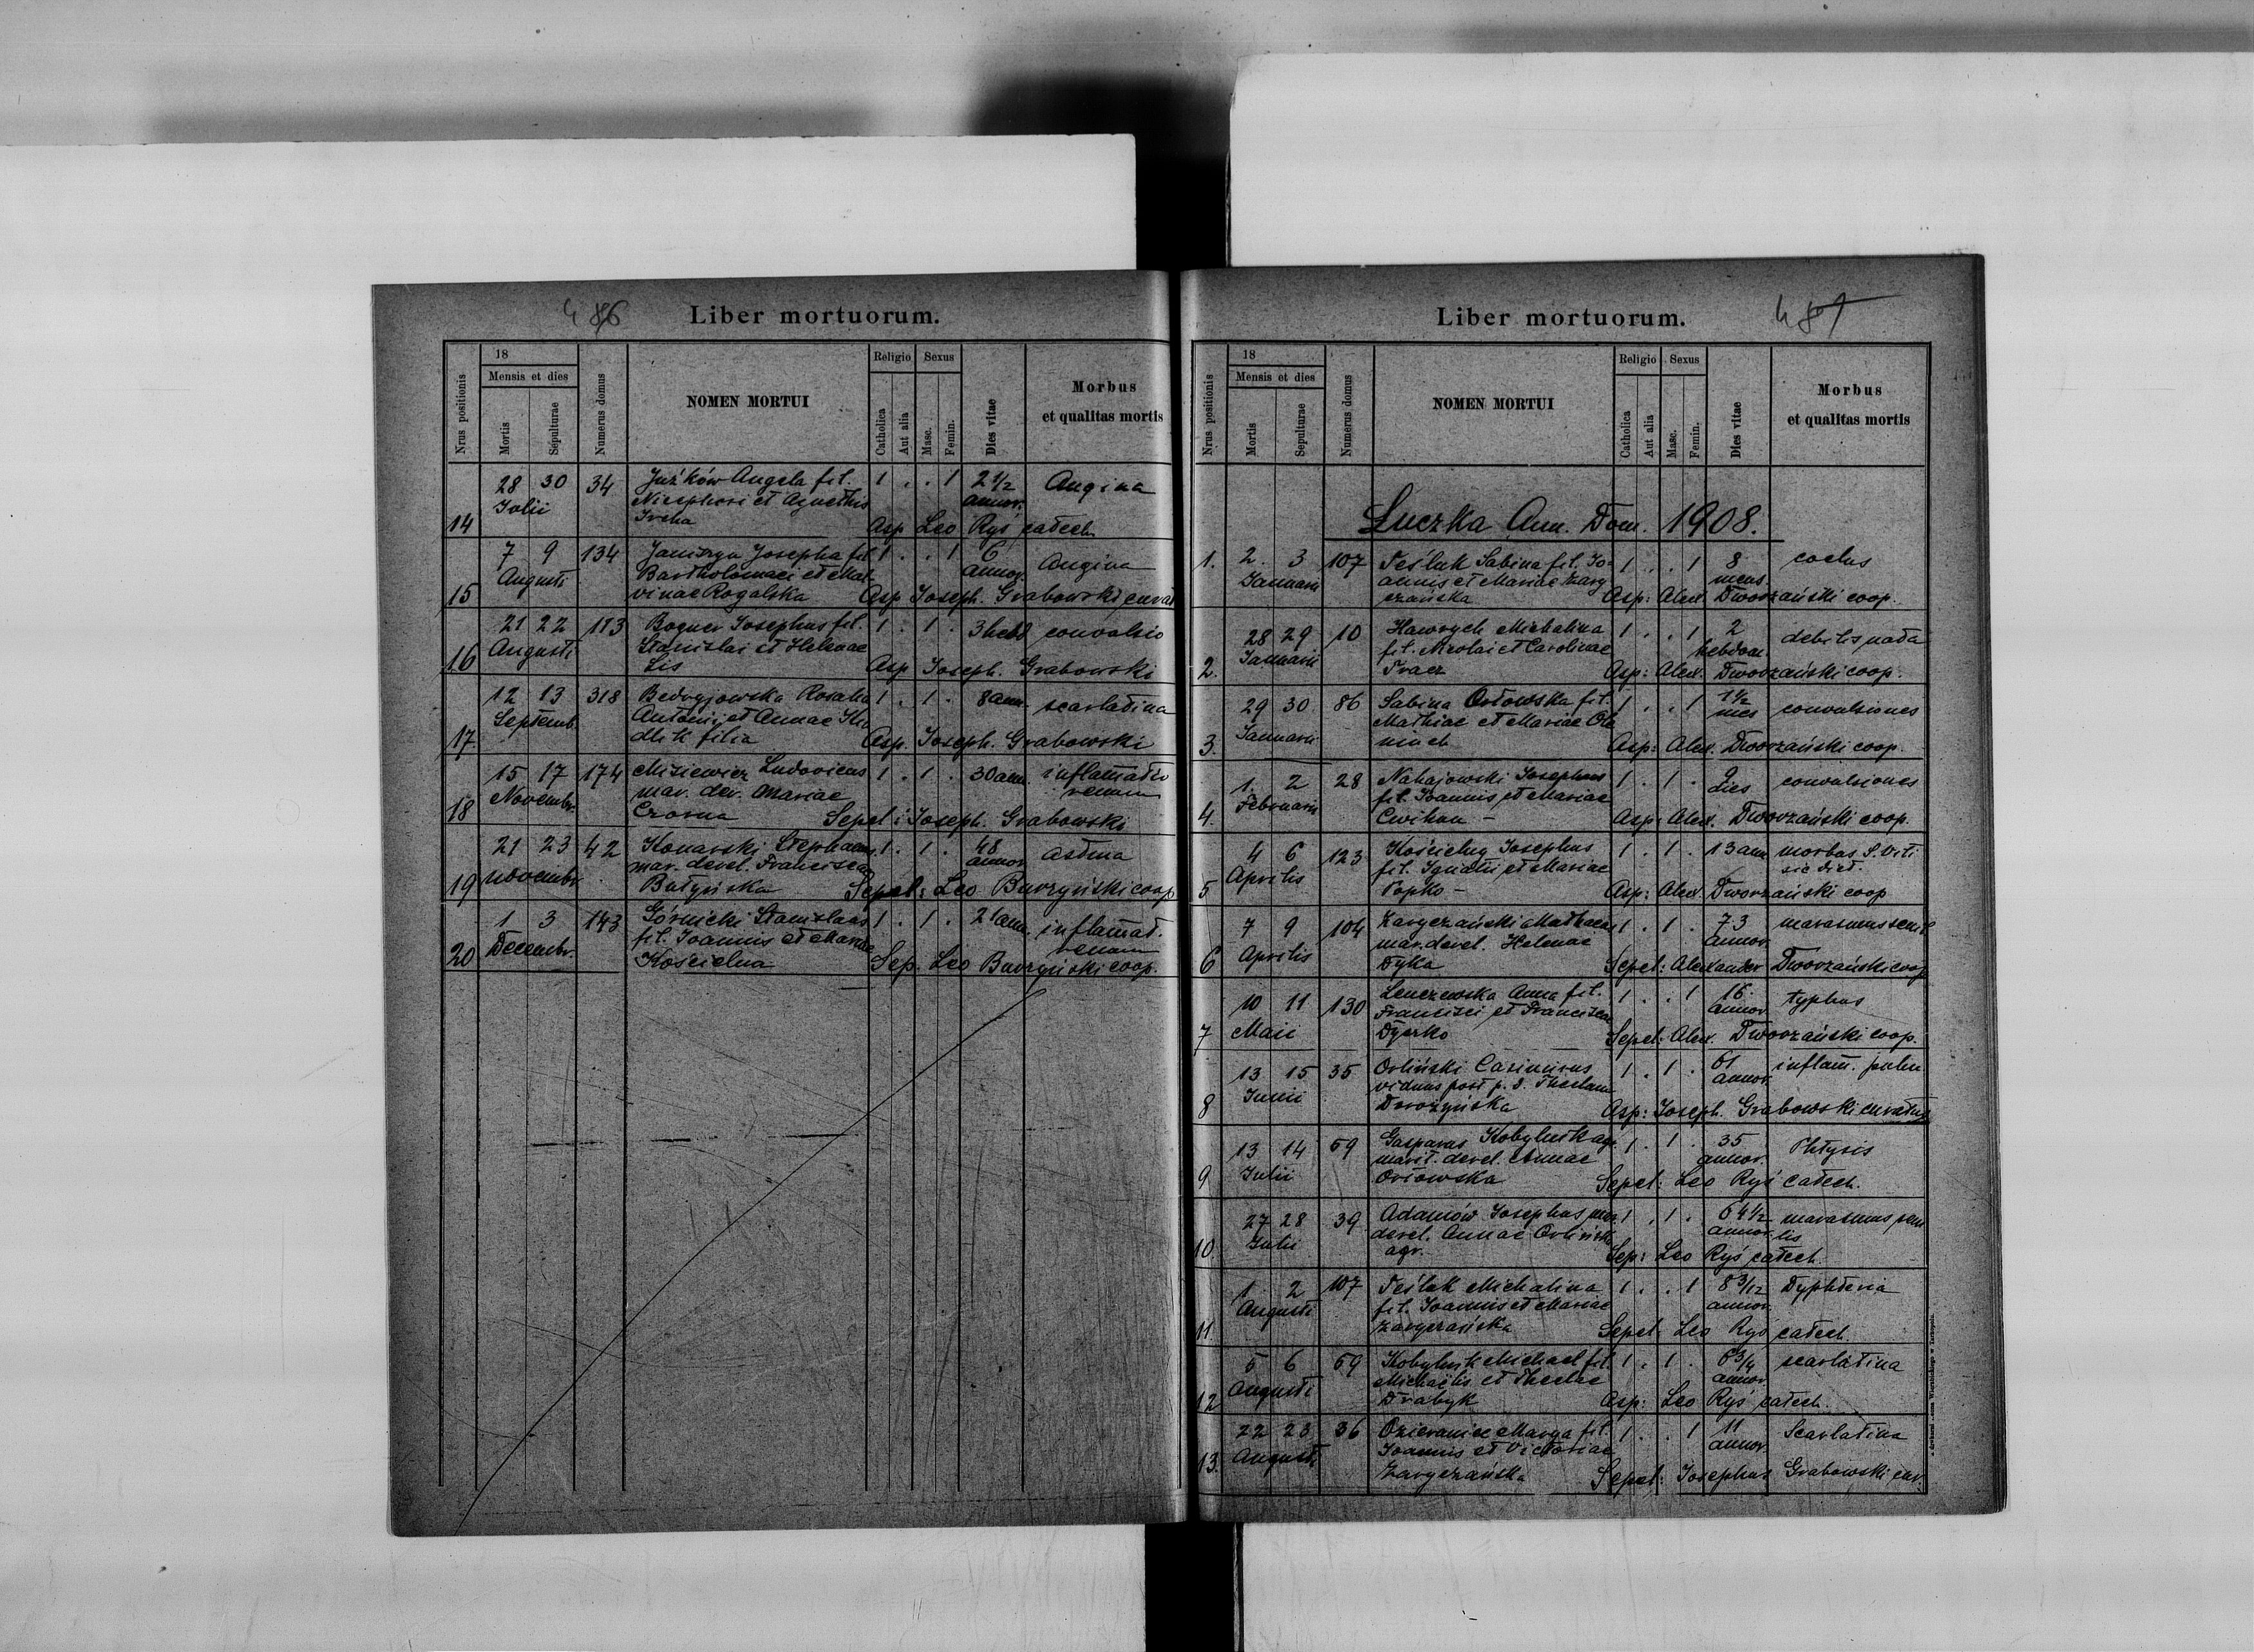 486
Liber mortuorum.
18
Mensis et dies
Nrus positionis
Mortis
Sepulturae
Numerus domus
NOMEN MORTUI
Religio
Sexus
Catholica
Aut alia
Masc.
Femin.
Dies vitae
Morbus
et qualitas mortis
28 30 34 Juśków Angela fil. 1 . . 1 2 1/2 Angina
Julii Nicephori et Agnethis annor.
14 Asp Leo Ryś catech.
7 9 134 Janiszyn Josepha fil. 1 . . 1 6 Angina
Augusti Bartholomaei et Mal- annor.
15 vinae Rogalska Asp Joseph. Grabowski curat
21 22 113 Bogner Josephus fil. 1 . 1 . 3 hebd convulsio
Augusti Stanislai et Helenae
16 Lis Asp Joseph. Grabowski
12 13 318 Rosalia 1 . 1 . 8 ann. scarlatina
Septemb. Antonii et Annae
17 filia Asp. Joseph. Grabowski
15 17 174 Misiewicz Ludovicus 1 . 1 . 30 ann. inflamatio
Novembr. mar. dev. Mariae renum
18 Czorna Sepel: Joseph. Grabowski
21 23 42 Konarski Stephanus 1 . 1 . 48 astma
Novembr. mar. devel. Franciscae annor
19 Sepel: Leo Burzyński coop
1 3 143 Górnicki Stanislaus 1 . 1 . 21 ann. inflamat.
Decembr. fil. Joannis et Mariae renum
20 Kościelna Sep. Leo Burzyński coop.
Liber mortuorum.
18
Mensis et dies
Nrus positionis
Mortis
Sepulturae
Numerus domus
NOMEN MORTUI
Religio
Sexus
Catholica
Aut alia
Masc.
Femin.
Dies vitae
Morbus
et qualitas mortis
Łuczka Ann. Dom. 1908.
1. 2. 3 107 Teśluk Sabina fil. Jo- 1 . . 1 8
Januarii annis et Mariae Zary mens.
czańska Asp: Alex. Dworzański coop.
28 29 10 Hawrych Michalina 1 . . 1 2 debilis nata
Januarii fil. Nicolai et Carolinae hebdom.
2. Tracz Asp: Alex. Dworzański coop.
29 30 86 Sabina Orłowska fil. 1 . . 1 1 1/2 convulsiones
Januarii Mathiae et Mariae Ole mens
3. Asp: Alex. Dworzański coop.
1. 2 28 Nahajowski Josephus 1 . 1 . 9 convulsiones
Februarii fil. Joannis et Mariae dies
4. Asp: Alex. Dworzański coop.
4 6 123 Kościelny Josephus 1 . 1 . 13 ann morbus S. Viti
Aprilis fil. Ignatii et Mariae sic dict.
5 Popko - Asp: Alex. Dworzański coop
7 9 104 Zaryczański Mathaeus 1 . 1 . 73 marasmus senil
Aprilis mar. devel. Helenae annor
6 Dyka Sepel: Alexander Dworzański coop
10 11 130 Lenczewska Anna fil. 1 . . 1 16 typhus
Maii Francisci et Franciscae annor
7 Dyczko Sepel: Alex. Dworzański coop.
13 15 35 Orliński Casimirus 1 . 1 . 61 inflam. pulm
Junii viduus post p. d. Theclam annor.
8 Dorożyńska Asp: Joseph. Grabowski curatus
13 14 59 Gasparus Kobyluk agr. 1 . 1 . 35 Phtysis
Julii marit. devel. Annae annor.
9 Orłowska Sepel: Leo Ryś catech.
27 28 39 Adamów Josephus mar. 1 . 1 . 64 1/2 marasmus seni
Julii devel. Annae Orlińska annor. lis
10 agr. Sep: Leo Ryś catech.
1 2 107 Teśluk Michalina 1 . . 1 8 3/12 Dyphteria
Augusti fil. Joannis et Mariae annor.
11 Zaryczańska Sepel: Leo Ryś catech.
5 6 59 Kobyluk Michael fil. 1 . 1 . 6 3/4 scarlatina
Augusti Michaëlis et Theclae annor
12 Drabyk Asp: Leo Ryś catech.
22 23 36 fil. 1 . . 1 11 Scarlatina
Augusti Joannis et Victoriae annor.
13. Zaryczańska Sepel: Josephus Grabowski cur.